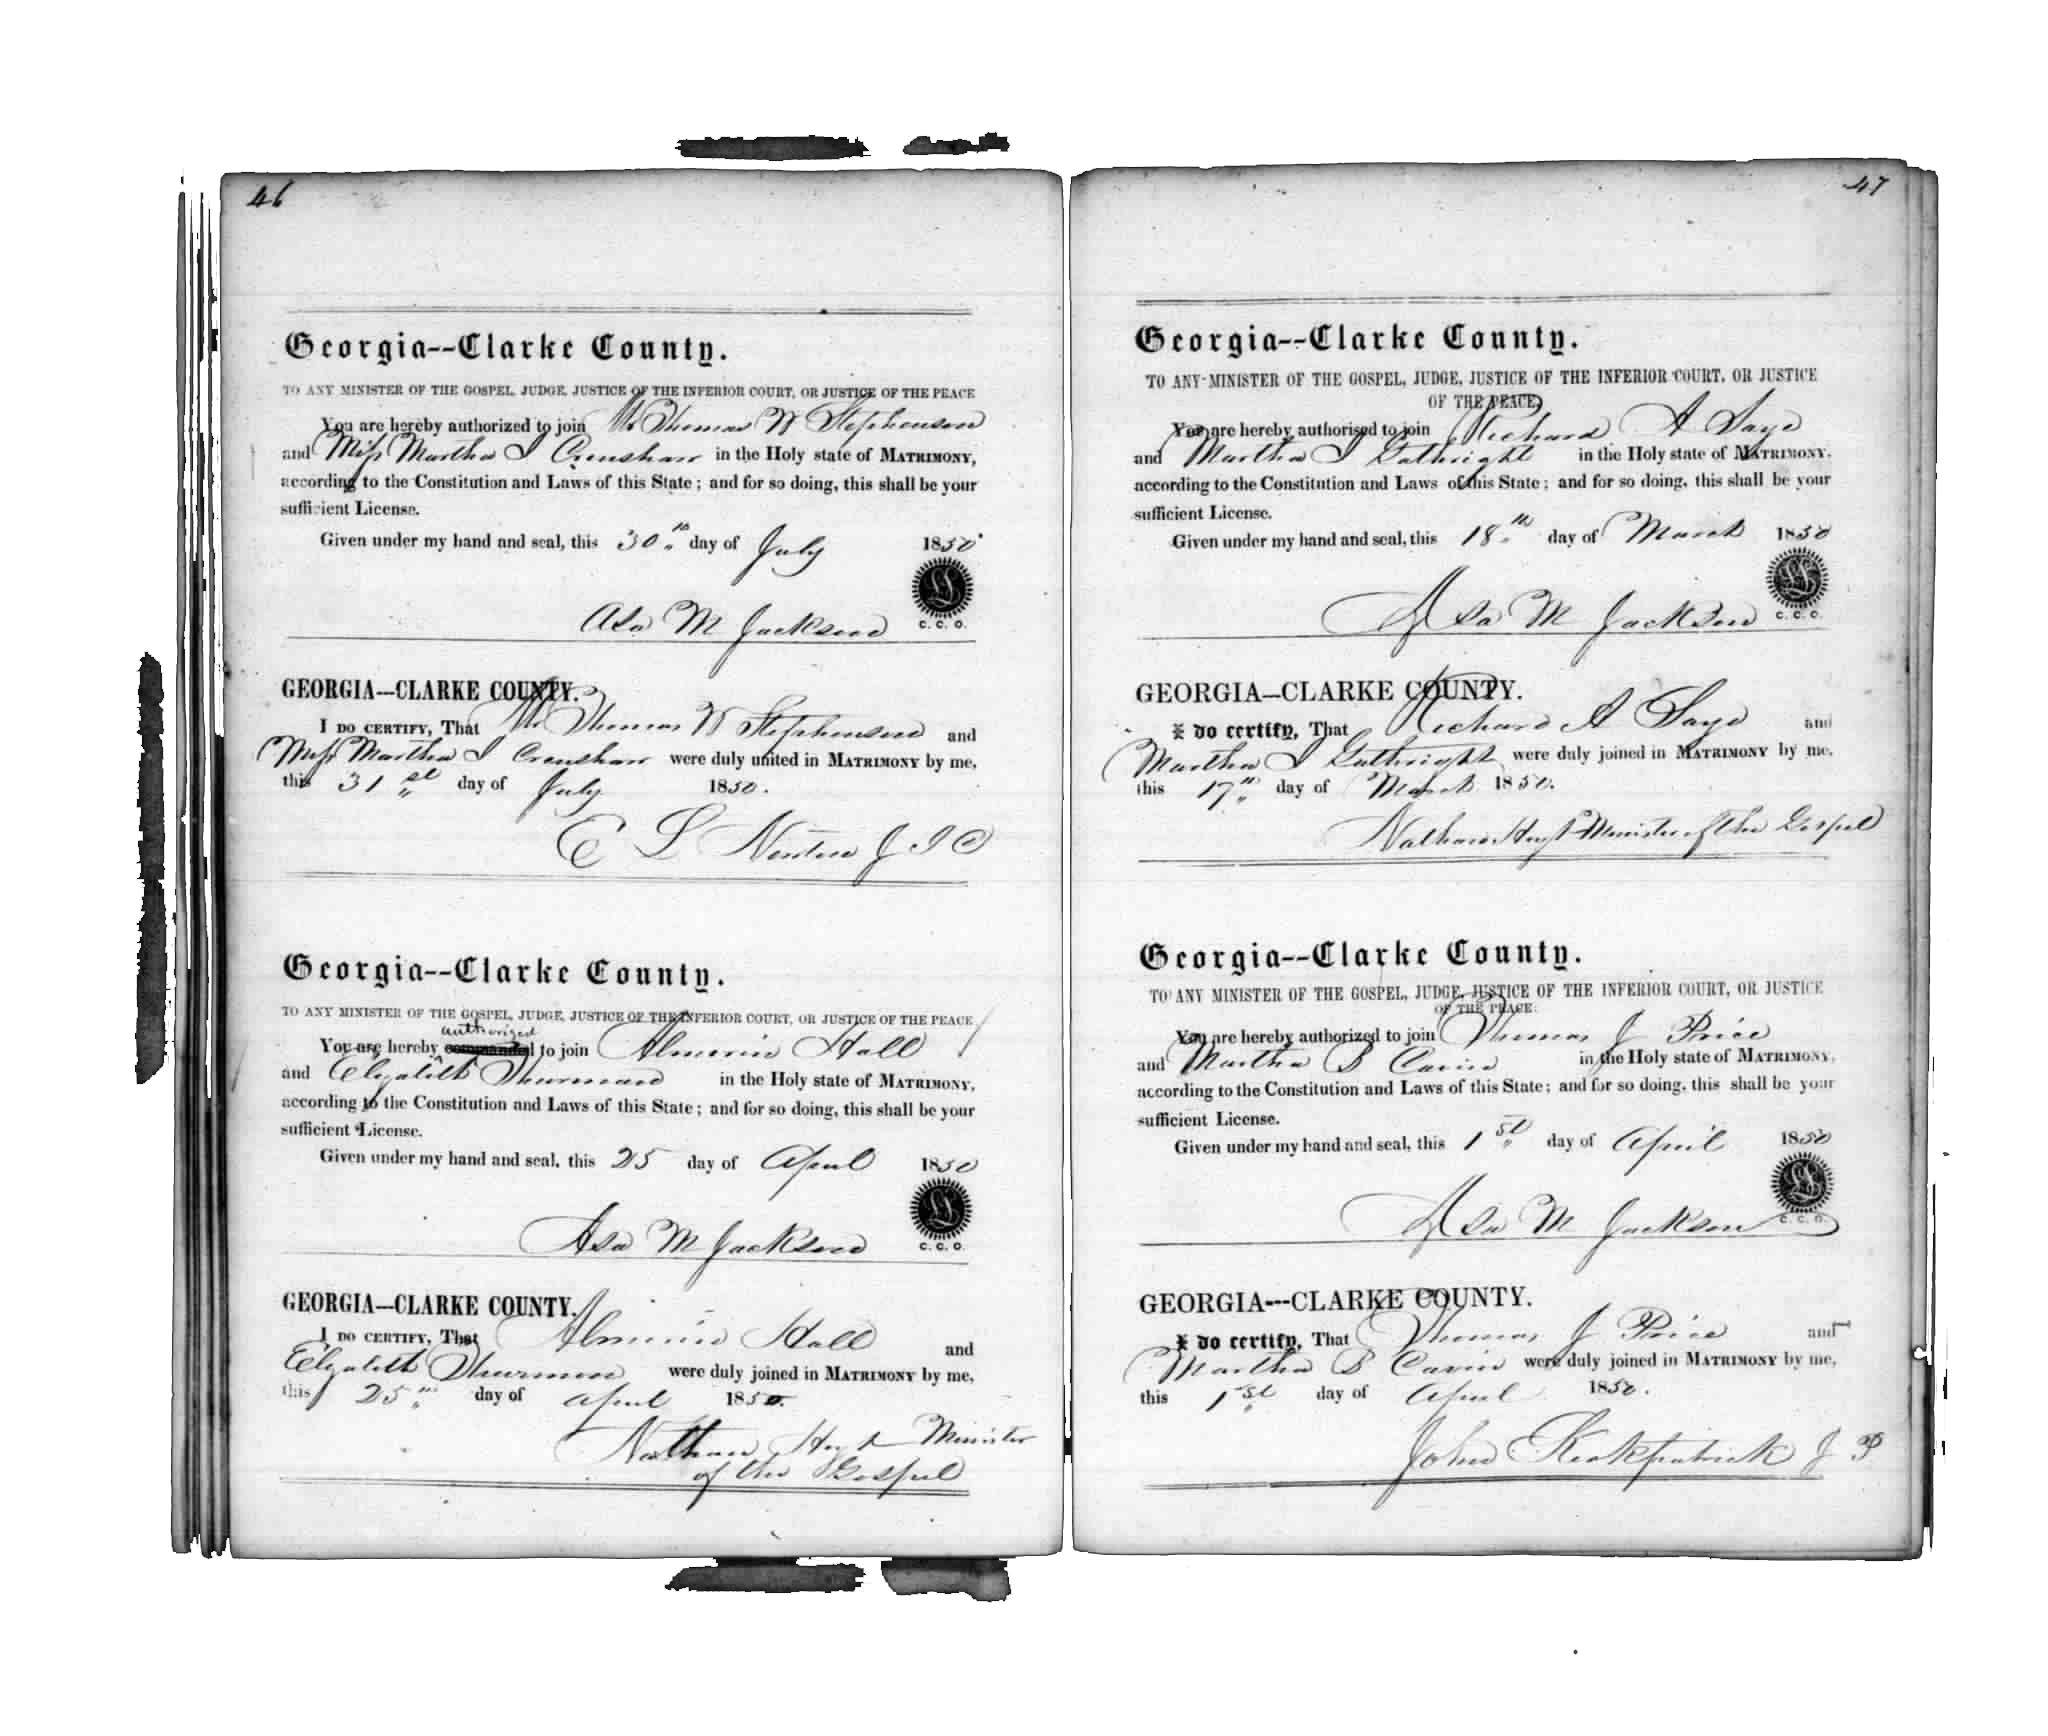 46
Georgia--Clarke County.
TO ANY MINISTER OF THE GOSPEL, JUDGE, JUSTICE OF THE INFERIOR COURT, OR JUSTICE OF THE PEACE
You are hereby authorized to join Mr Thomas W Stephenson
and Miss Martha J Crenshaw in the Holy state of MATRIMONY,
according to the Constitution and Laws of this State; and for so doing, this shall be your
sufficient License.
Given under my hand and seal, this 30th day of July 1850
Asa M Jackson C. C. O.
GEORGIA—CLARKE COUNTY.
I DO CERTIFY, That Mr Thomas W Stephenson and
Miss Martha J Crenshaw were duly united in MATRIMONY by me,
this 31st day of July 1850.
E L Newton J I C
Georgia--Clarke County.
TO ANY MINISTER OF THE GOSPEL, JUDGE, JUSTICE OF THE INFERIOR COURT, OR JUSTICE OF THE PEACE
authorized
You are hereby commanded to join Almerin Hall
and Elizabeth Thurman in the Holy state of MATRIMONY,
according to the Constitution and Laws of this State; and for so doing, this shall be your
sufficient License.
Given under my hand and seal, this 25 day of April 1850
Asa M Jackson C. C. O.
GEORGIA—CLARKE COUNTY.
I DO CERTIFY, That Almerin Hall and
Elizabeth Thurman were duly joined in MATRIMONY by me,
this 25th day of April 1850.
Nathan Hoyt Minister
of the Gospel
47
Georgia--Clarke County.
TO ANY MINISTER OF THE GOSPEL, JUDGE, JUSTICE OF THE INFERIOR COURT, OR JUSTICE
OF THE PEACE
You are hereby authorised to join Richard A Saye
and Martha J Gathright in the Holy state of MATRIMONY,
according to the Constitution and Laws of this State; and for so doing, this shall be your
sufficient License.
Given under my hand and seal, this 18th day of March 1850
Asa M Jackson C. C. O.
GEORGIA—CLARKE COUNTY.
I do certify, That Richard A Saye and
Martha J Gathright were duly joined in MATRIMONY by me,
this 17th day of March 1850.
Nathan Hoyt Minister of the Gospel
Georgia--Clarke County.
TO ANY MINISTER OF THE GOSPEL, JUDGE, JUSTICE OF THE INFERIOR COURT, OR JUSTICE
OF THE PEACE.
You are hereby authorized to join Thomas J Price
and Martha B Cavin in the Holy state of MATRIMONY,
according to the Constitution and Laws of this State; and for so doing, this shall be your
sufficient License.
Given under my hand and seal, this 1st day of April 1850
Asa M Jackson C. C. O.
GEORGIA---CLARKE COUNTY.
I do certify, That Thomas J Price and
Martha B Cavin were duly joined in MATRIMONY by me,
this 1st day of April 1850.
John Kirkpatrick J P